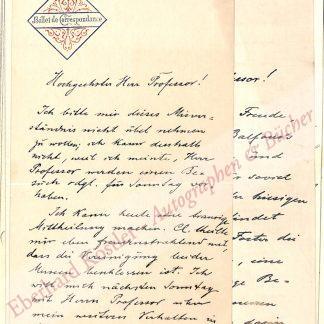 Billet de Correspondance
Hochgeehrter Herr Professor!
Ich bitte mir dieses Missver-
ständnis nicht übel nehmen
zu wollen; ich kam deshalb
nicht, weil ich meinte, Herr
Professor würden einen Be-
such für Sonntag
haben.
Ich kann heute eine traurige
Mittheilung machen. Cl. theilte
mir eben mit,
dass die Vereinigung beider
Museen ist. Ich
mich nächsten Sonntag
mit Herrn Professor über
mein weiteres Verhalten in
essor!
Freude
Balfour
und
soviel
hiesigen
findet
Foster die
eine
ge Be-
einen
so
Eberhard Köstler Autographen & Bücher